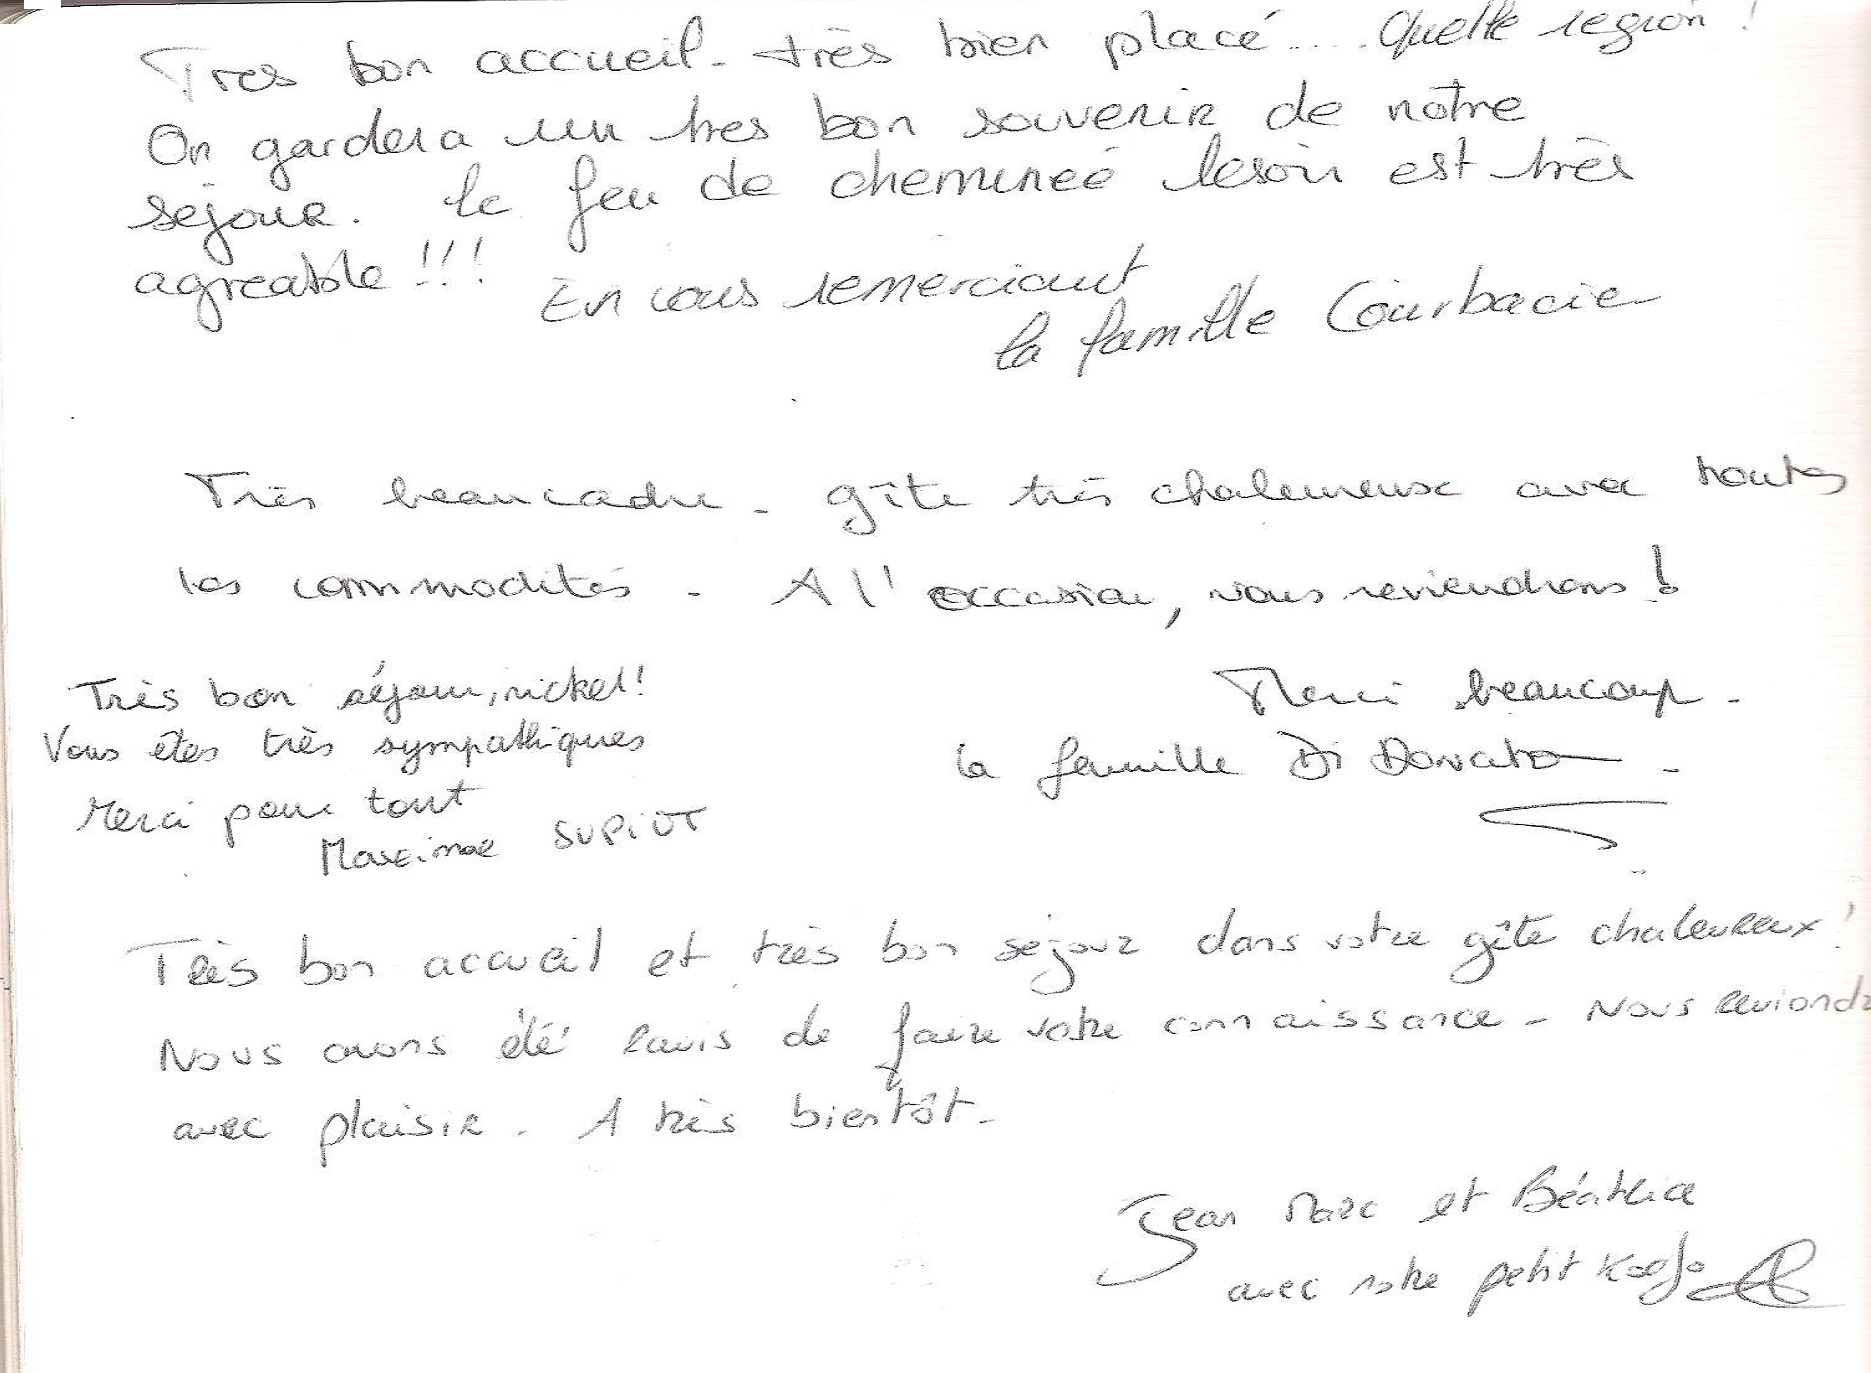 Tres bon accueil. très bien placé..... Quelle region !
On gardera un tres bon souvenir de notre
séjour. le feu de cheminée le soir est très
agreable !!!
En vous remerciant
la famille Courbacie
Très beau cadre. gîte très chaleureux avec toutes
les commodités. A l'occasion, nous reviendrons !
Merci beaucoup.
la famille Di Donato.
Très bon séjour, nickel !
Vous êtes très sympathiques
Merci pour tout
Maxime SUPIOT
Très bon accueil et très bon séjour dans votre gîte chaleureux !
Nous avons été ravis de faire votre connaissance - Nous reviendr
avec plaisir. A très bientôt.
Jean Marc et Béatrice
avec notre petit